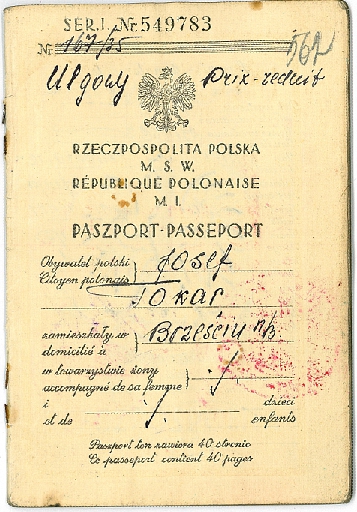 SER. I. № 549783
№ 167/35
562
Ulgowy Prix-reduit
RZECZPOSPOLITA POLSKA
M. S. W.
RÉPUBLIQUE POLONAISE
M. I.
PASZPORT-PASSEPORT
Obywatel polski
Citoyen polonais
Josef
Tokar
zamieszkały w
domicilié à
Brześciu n/b
w towarzystwie żony
accompagné de sa femme
i dzieci
et de enfants
Paszport ten zawiera 40 stronic
Ce passeport contient 40 pages